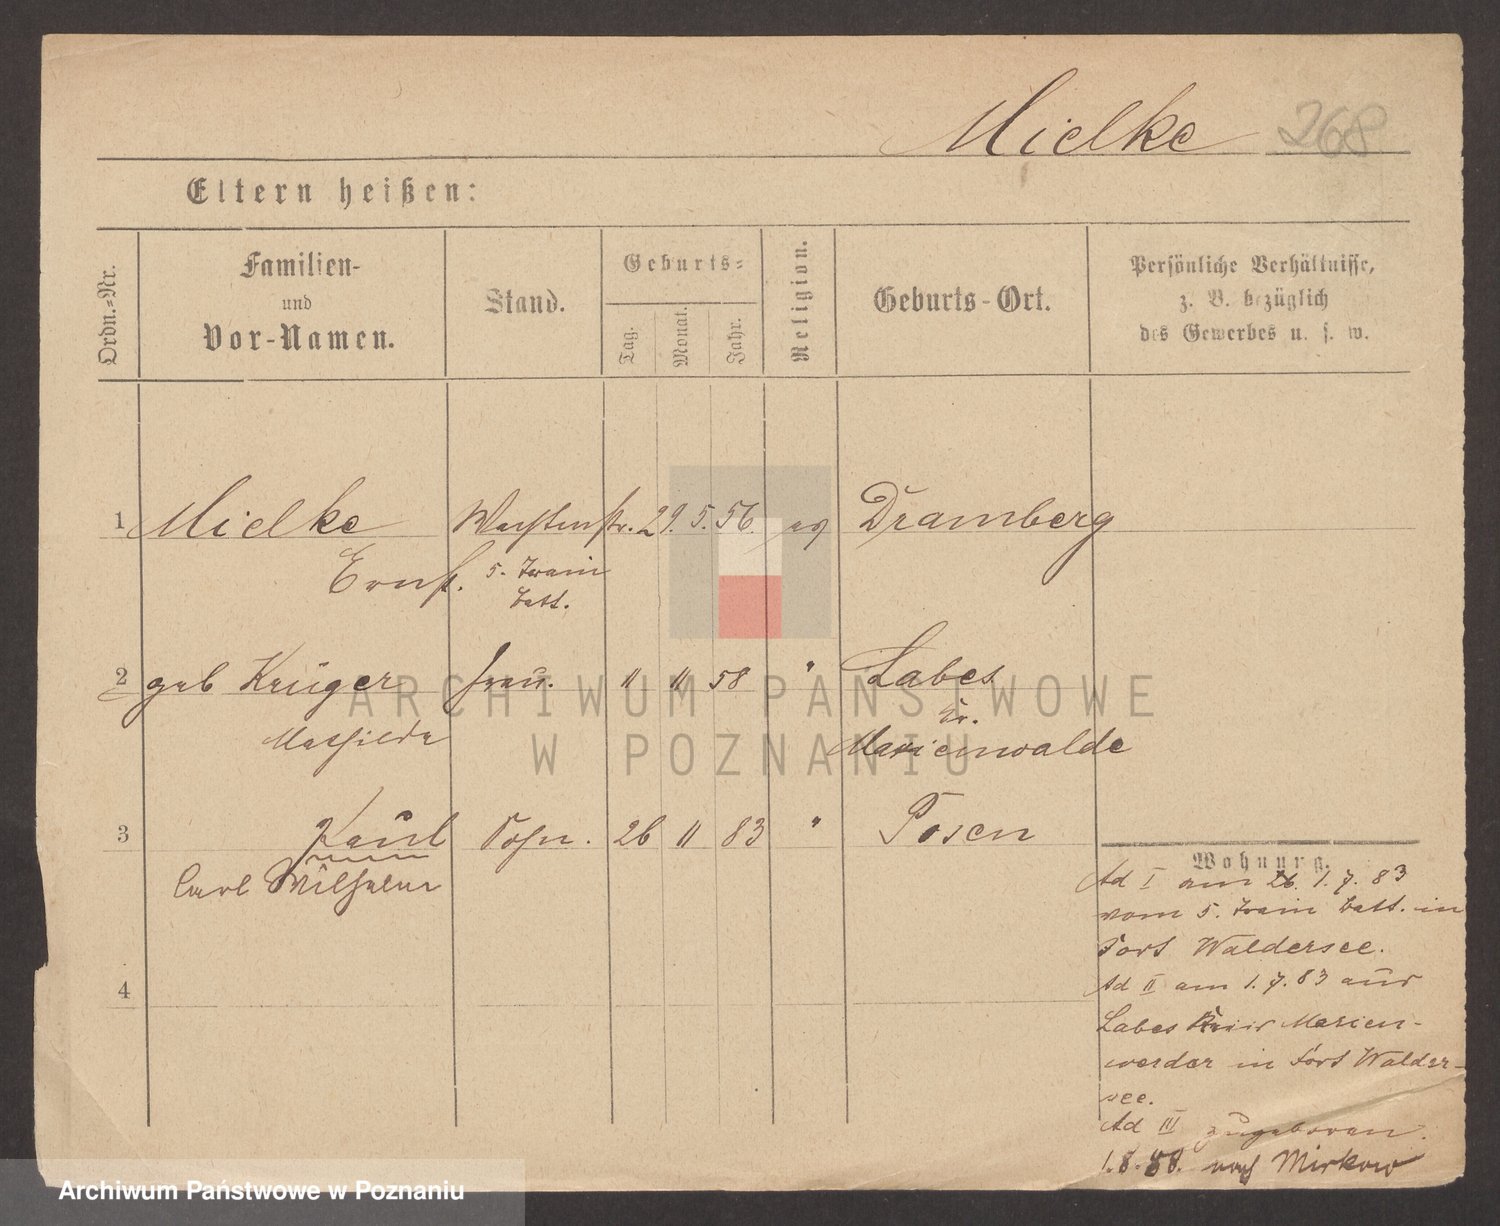 Mielke 268
Eltern heißen:
Ordn.-Nr.
Familien-
und
Vor-Namen.
Stand.
Geburts-
Tag.
Monat.
Jahr.
Religion.
Geburts-Ort.
Persönliche Verhältnisse,
z. B. bezüglich
des Gewerbes u. s. w.
1 Mielke 29. 5. 56. ev Dramberg
Ernst. 5. Train
Batt.
2 geb Krüger Frau. " 11 58 " Labes
Mathilde Kr. Marienwalde
3 Paul Sohn. 26 11 83 " Posen
Carl Wilhelm
4
Wohnung.
Ad I am 26. 1. 7. 83
vom 5. Train Batt. in
Fort Waldersee.
Ad II am 1. 7. 83 aus
Labes Kreis Marien-
werder in Fort Walder-
see.
Ad III zugeboren.
1. 8. 88. nach Mirkow
ARCHIWUM PAŃSTWOWE
W POZNANIU
Archiwum Państwowe w Poznaniu